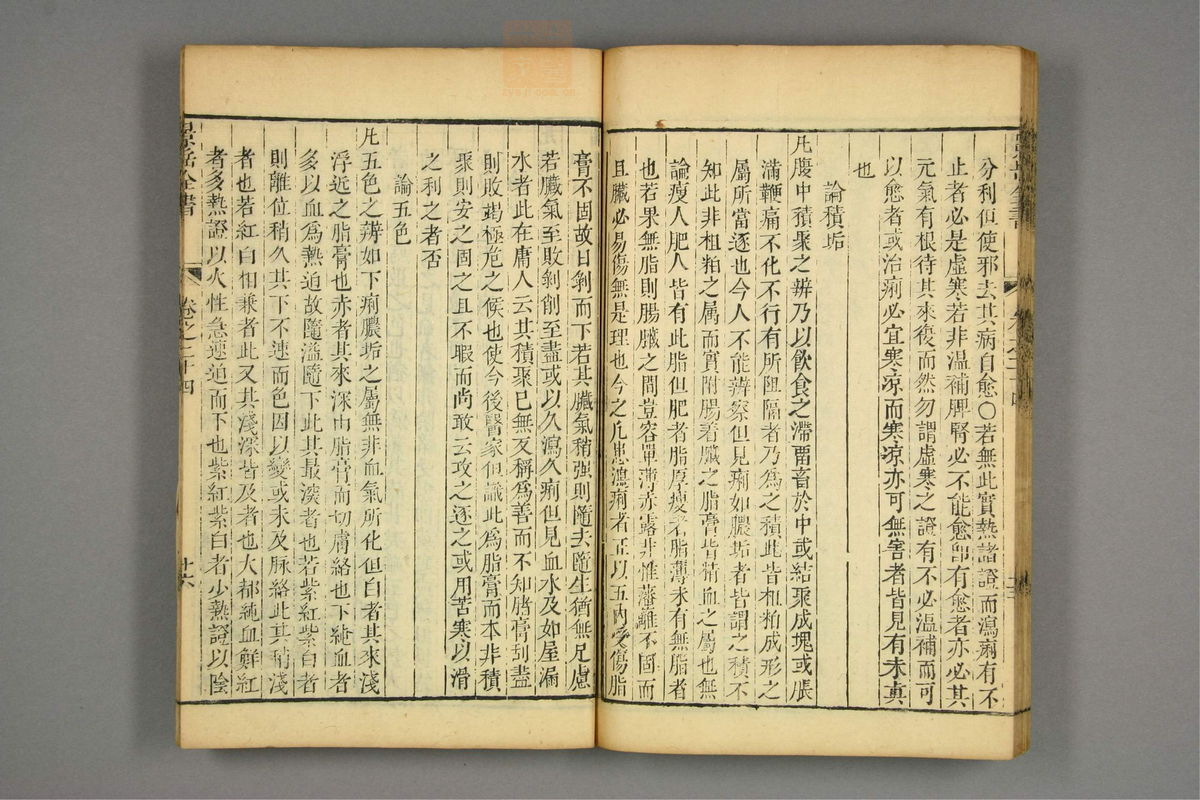 分利但使邪去其病自愈○若無此實熱諸證而瀉痢有不
止者必是虛寒若非溫補脾腎必不能愈卽有愈者亦必其
元氣有根待其來復而然勿謂虛寒之證有不必溫補而可
以愈者或治痢必宜寒凉而寒凉亦可無害者皆見有未眞
也
論積垢
凡腹中積聚之辨乃以飮食之滯畱畜於中或結聚成塊或脹
滿鞕痛不化不行有所阻隔者乃爲之積此皆粗粕成形之
屬所當逐也今人不能辨察但見痢如膿垢者皆謂之積不
知此非粗粕之屬而實附腸着臟之脂膏皆精血之屬也無
論瘦人肥人皆有此脂但肥者脂厚瘦者脂薄未有無脂者
也若果無脂則腸臟之間豈容單薄赤露非惟藩籬不固而
且臟必易傷無是理也今之凡患瀉痢者正以五內受傷脂
膏不固故日剝而下若其臟氣稍强則隨去隨生猶無足慮
若臟氣至敗剝削至盡或以久瀉久痢但見血水及如屋漏
水者此在庸人云其積聚已無反稱爲善而不知脂膏刮盡
則敗竭極危之候也使今後醫家但識此爲脂膏而本非積
聚則安之固之且不暇而尚敢云攻之逐之或用苦寒以滑
之利之者否
論五色
凡五色之辨如下痢膿垢之屬無非血氣所化但白者其來淺
浮近之脂膏也赤者其來深由脂膏而切膚絡也下純血者
多以血爲熱迫故隨溢隨下此其最深者也若紫紅紫白者
則離位稍久其下不速而色因以變或未及脉絡此其稍淺
者也若紅白相兼者此又其淺深皆及者也大都純血鮮紅
者多熱證以火性急速迫而下也紫紅紫白者少熱證以陰
景岳全書
卷之二十四
廿六